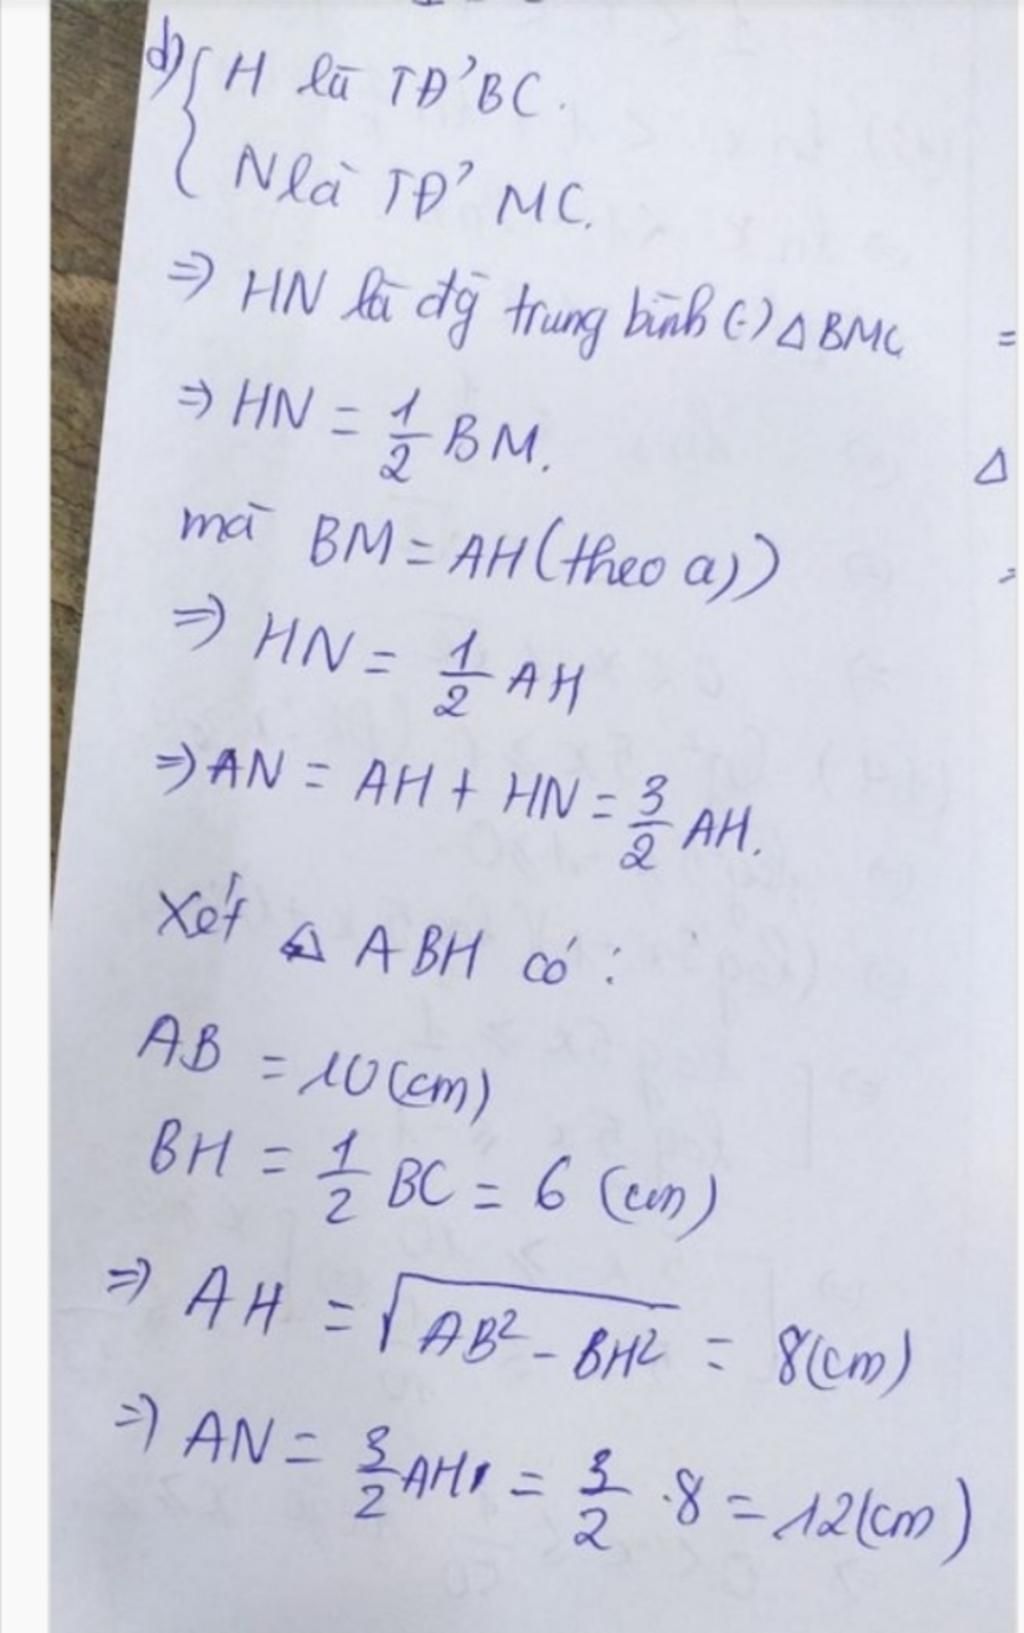 d) { H là TĐ' BC.
N là TĐ' MC.
=> HN là đg trung bình (-) △ BMC
=> HN = 1/2 BM.
mà BM = AH (theo a))
=> HN = 1/2 AH
=> AN = AH + HN = 3/2 AH.
Xét △ ABH có :
AB = 10 (cm)
BH = 1/2 BC = 6 (cm)
=> AH = √(AB² - BH²) = 8 (cm)
=> AN = 3/2 AH = 3/2 . 8 = 12 (cm)